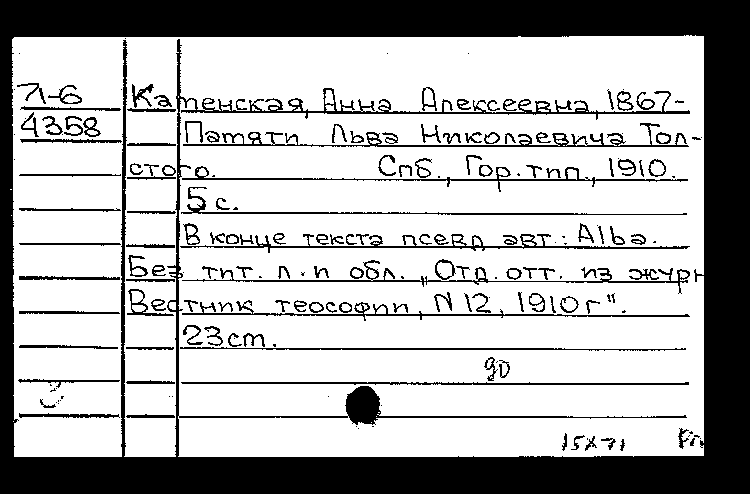 71-6 Каменская, Анна Алексеевна, 1867-
4358 Памяти Льва Николаевича Тол-
стого. Спб., Гор. тип., 1910.
5 с.
В конце текста псевд авт.: Alba.
Без тит. л. и обл. „Отд. отт. из журн
Вестник теософии, N 12, 1910 г".
23 cm.
90
15X-71